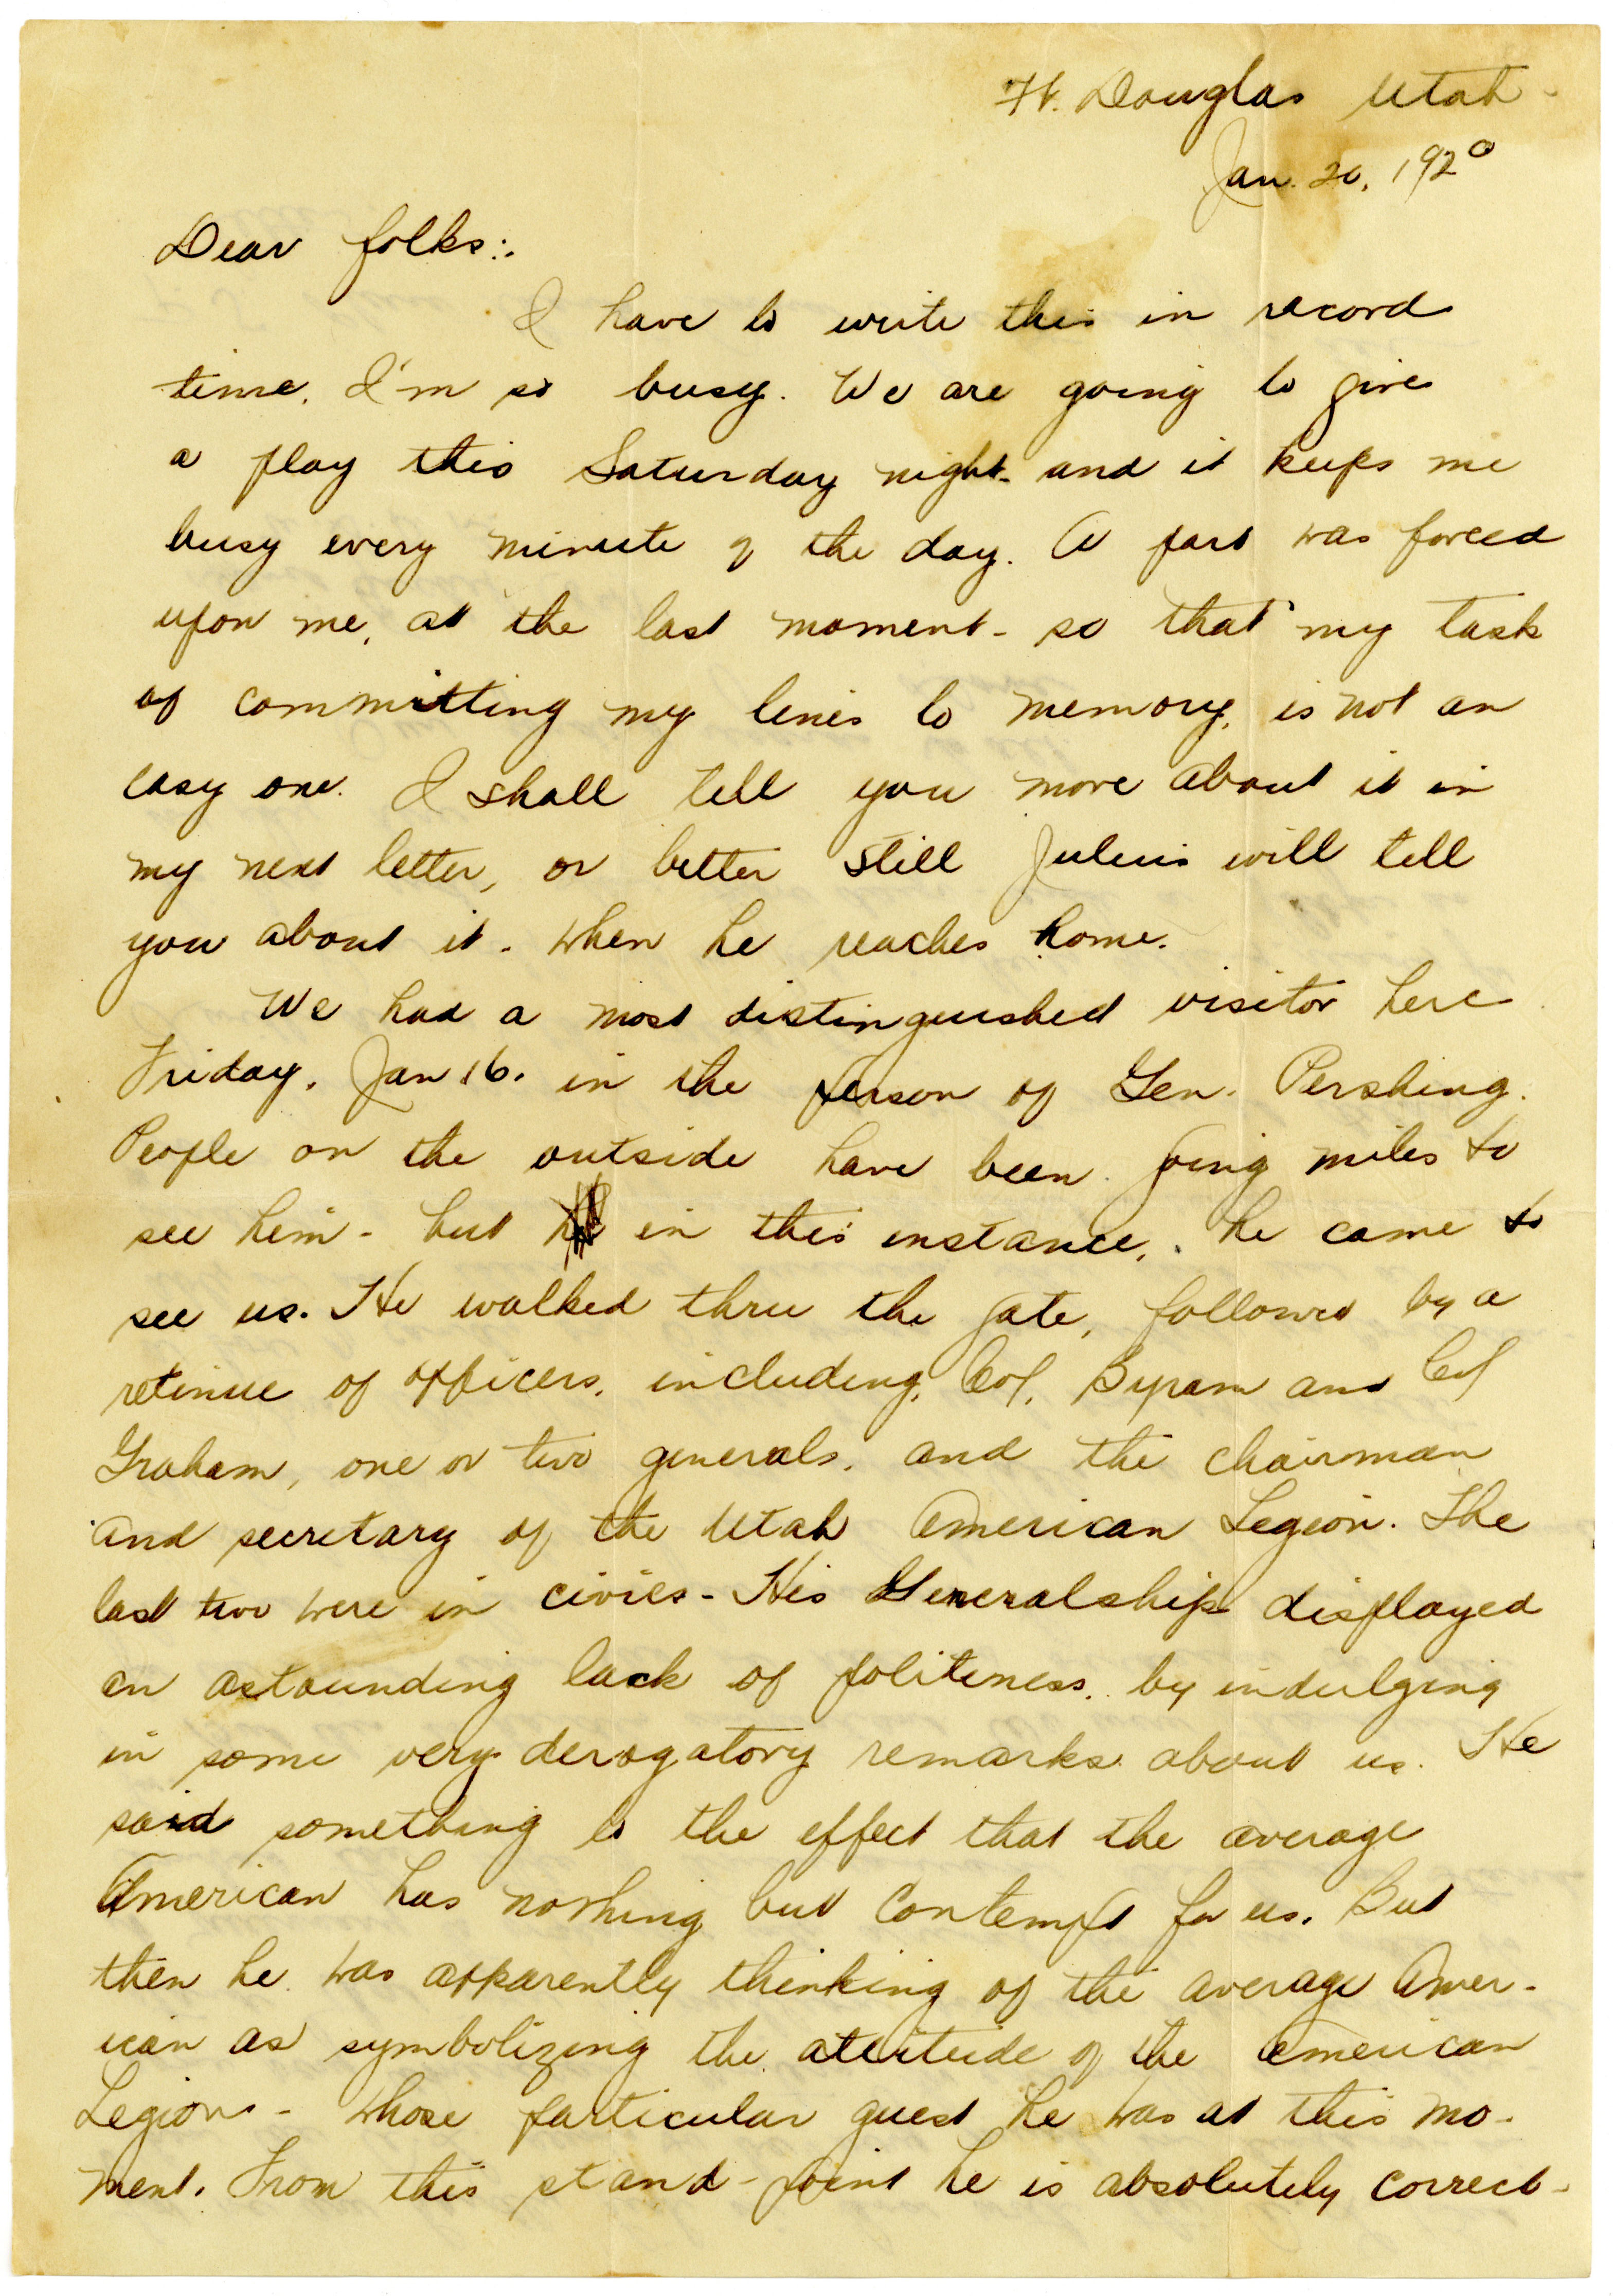 Ft. Douglas Utah -
Jan. 20, 1920
Dear folks:.
I have to write this in record
time. I'm so busy. We are going to give
a play this Saturday night - and it keeps me
busy every minute of the day. A part was forced
upon me, at the last moment - so that my task
of committing my lines to memory, is not an
easy one. I shall tell you more about it in
my next letter, or better still Julius will tell
you about it - when he reaches home.
We had a most distinguished visitor here
Friday, Jan 16. in the person of Gen. Pershing.
People on the outside have been going miles to
see him - but in this instance, he came to
see us. He walked thru the gate, followed by a
retinue of officers, including, Col. Byram and Col
Graham, one or two generals, and the chairman
and secretary of the Utah American Legion. The
last two were in civies - His Generalship displayed
an astounding lack of politeness, by indulging
in some very derogatory remarks about us. He
said something to the effect that the average
American has nothing but contempt for us. But
then he was apparently thinking of the average Amer-
ican as symbolizing the attitude of the American
Legion - whose particular guest he was at this mo-
ment. From this stand-point he is absolutely correct -